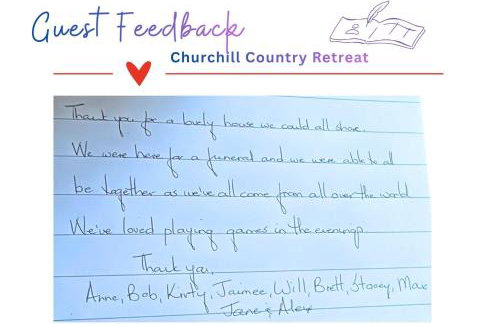 Guest Feedback
Churchill Country Retreat
Thank you for a lovely house we could all share.
We were here for a funeral and we were able to all
be together as we've all come from all over the world
We've loved playing games in the evenings
Thank you,
Anne, Bob, Kirsty, Jaimee, Will, Brett, Stacey, Max
Jane & Alex